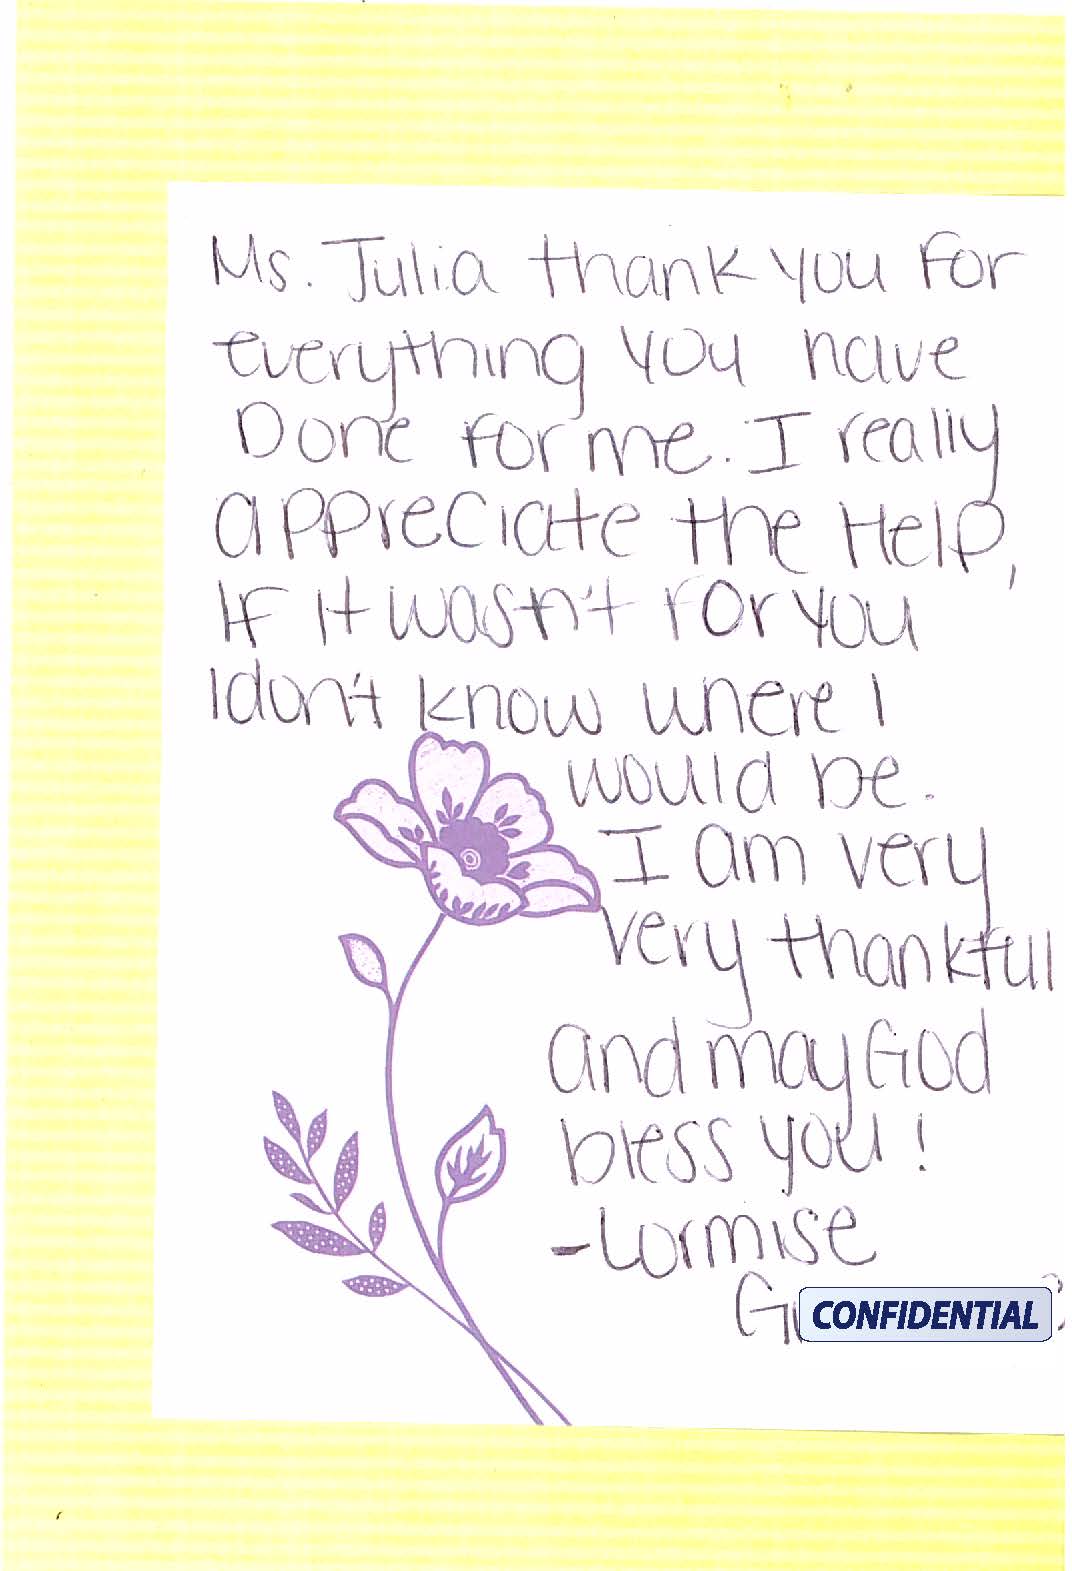 Ms. Julia thank you for
everything you have
Done for me. I really
appreciate the Help,
If it wasn't for you
I don't know where I
would be.
I am very
very thankful
and may God
bless you!
-Lormise
CONFIDENTIAL